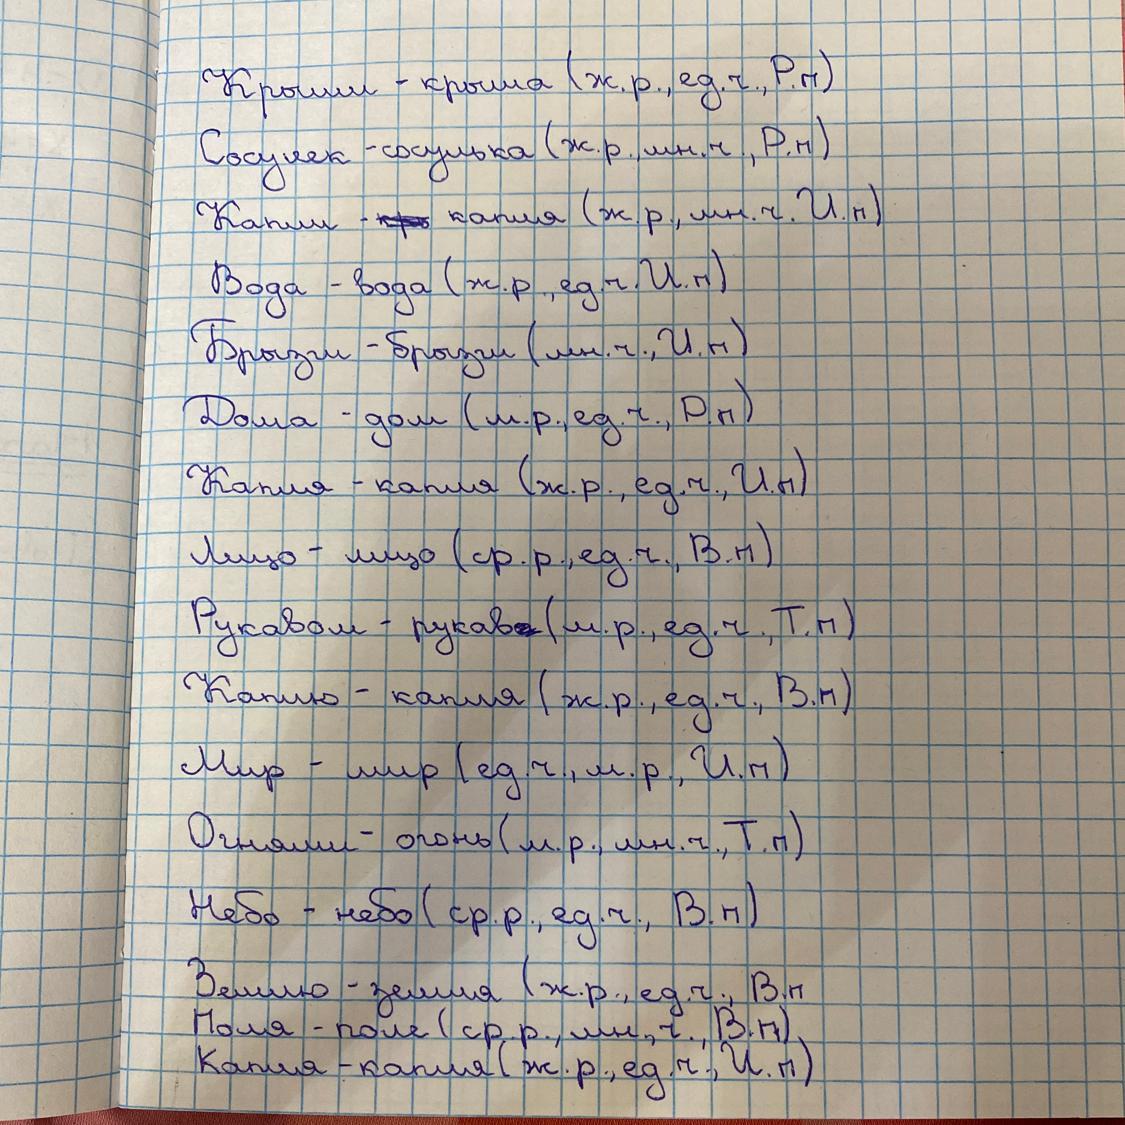 Крыши - крыша (ж.р., ед.ч., Р.п)
Сосулек - сосулька (ж.р., мн.ч, Р.п)
Капли - капля (ж.р., мн.ч. И.п)
Вода - вода (ж.р., ед.ч. И.п)
Брызги - брызги (мн.ч., И.п)
Дома - дом (м.р., ед.ч., Р.п)
Капля - капля (ж.р., ед.ч., И.п)
Лицо - лицо (ср.р., ед.ч., В.п)
Рукавом - рукав (м.р., ед.ч., Т.п)
Каплю - капля (ж.р., ед.ч., В.п)
Мир - мир (ед.ч., м.р., И.п)
Огнями - огонь (м.р., мн.ч., Т.п)
Небо - небо (ср.р., ед.ч., В.п)
Землю - земля (ж.р., ед.ч., В.п
Поля - поле (ср.р., мн., ч., В.п)
Капля - капля (ж.р., ед.ч., И.п)